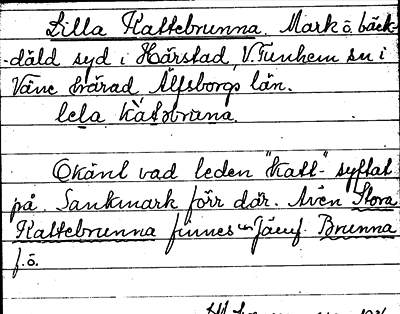 Lilla Kattebrunna. Mark ö. bäck-
-däld syd i Hårstad, V. Tunhem sn i
Väne härad Älfsborgs län.
lela kàtabrúna.
Okänt vad leden "Katt-" syftat
på. Sankmark förr där. Även Stora
Kattebrunna finnes. Jämf. Brunna
f.ö.